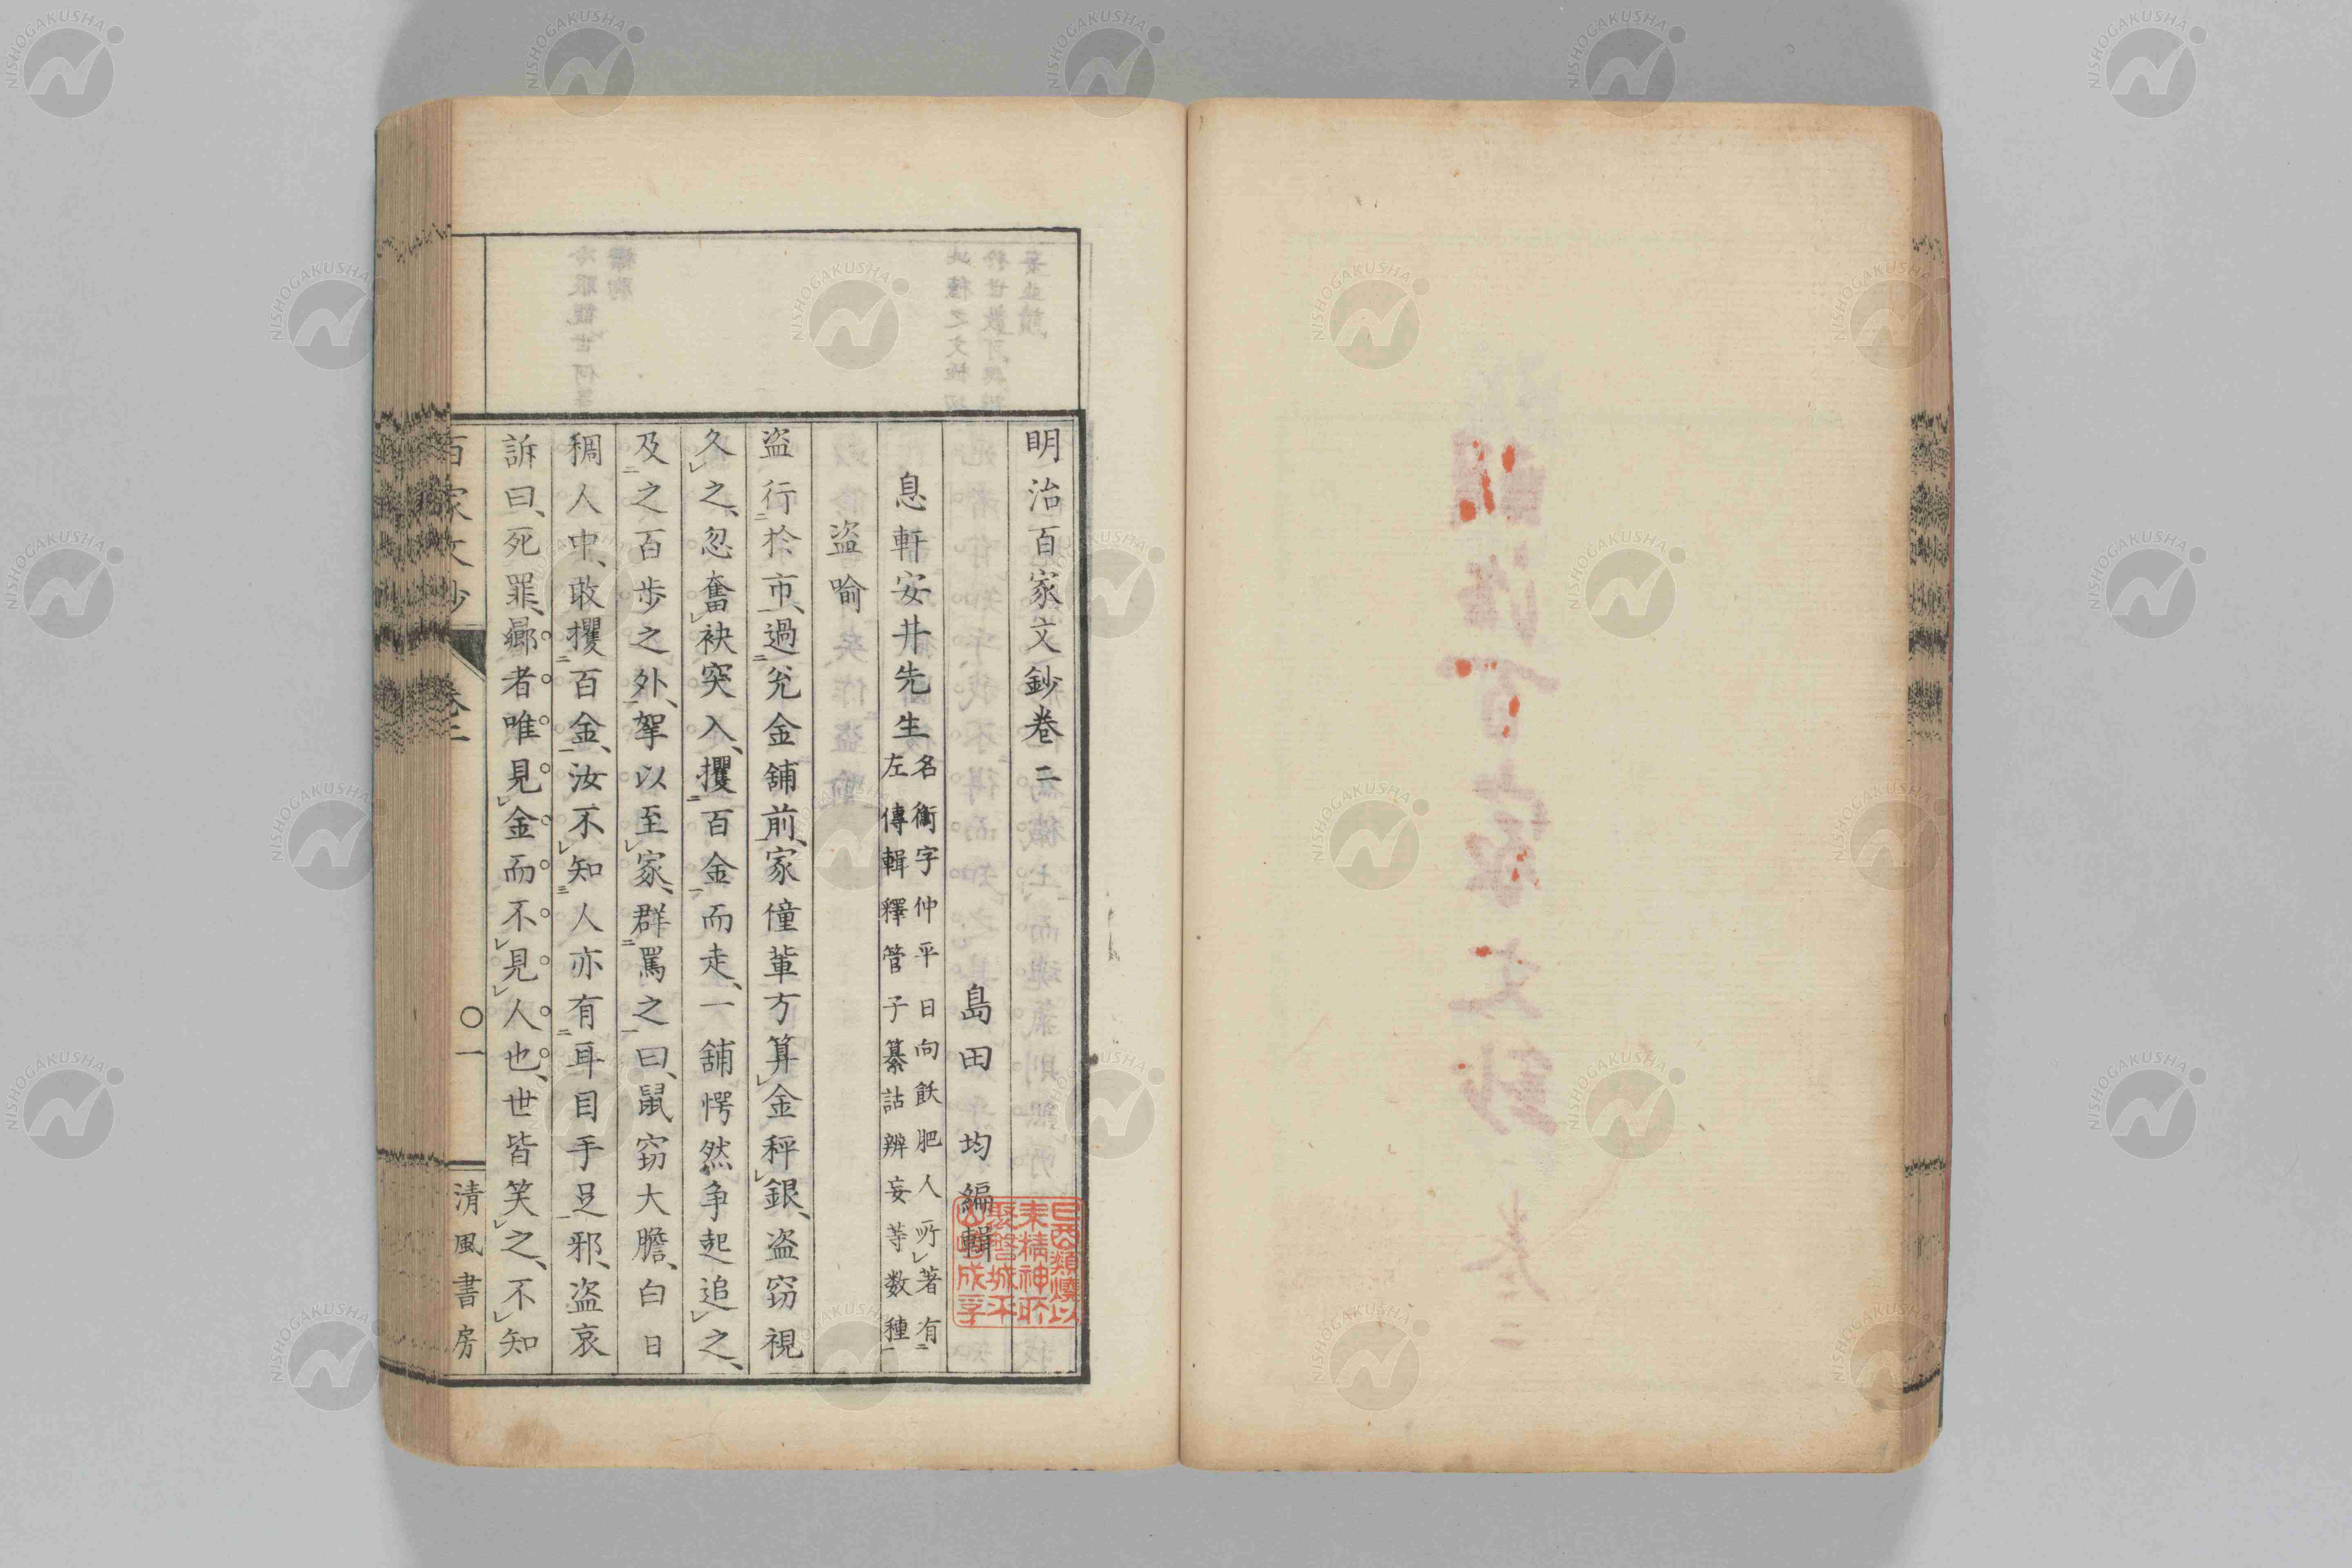 明治百家文鈔卷二
島田均編輯
息軒安井先生
名衡字仲平日向飫肥人所著有
左傳輯釋管子纂詁辨妄等数種
盗喻
盗行於市、過兊金舗前、家僮輩方算金秤銀、盗窃視
久之、忽奮袂突入、攫百金而走、一舗愕然争起追之、
及之百歩之外、拏以至家、群罵之曰、鼠窃大膽、白日
稠人中、敢攫百金、汝不知人亦有耳目手足邪、盗哀
訴曰、死罪、曏者唯見金而不見人也、世皆笑之、不知
百家文鈔
卷二
〇一
清風書房
NISHOGAKUSHA